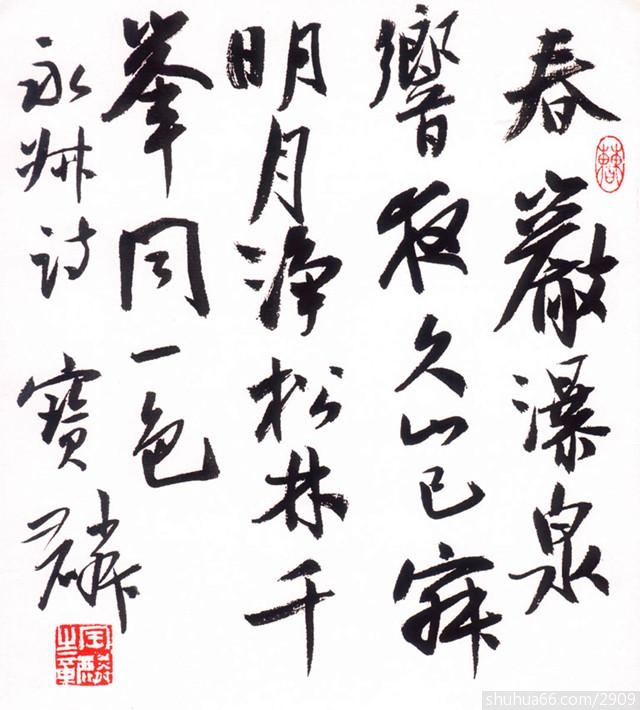 春巖瀑泉
響夜久山已寂
明月淨松林千
峯同一色
永州詩 寶麟
shuhua66.com/2909